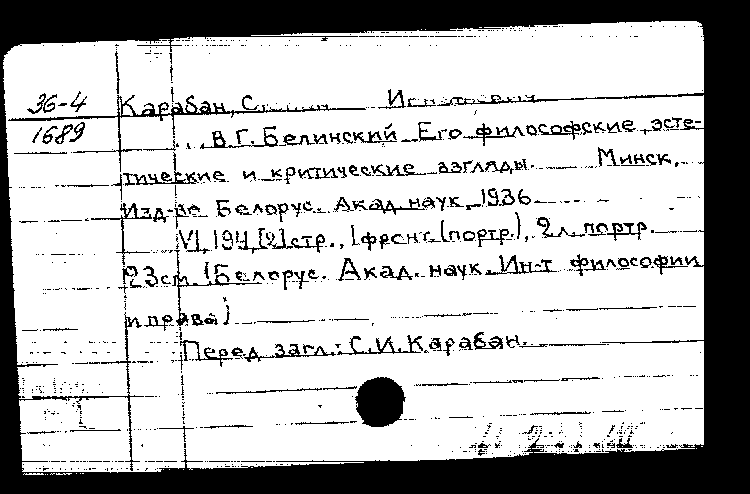 36-4 Карабан, С
1689 ...В.Г. Белинский. Его философские, эсте-
тические и критические взгляды. Минск,
Изд-во Белорус. Акад. наук, 1936.
VI, 194, [2] стр., 1 фронт. (портр.), 2 л. портр.
23 см. (Белорус. Акад. наук. Ин-т философии
и права)
Перед загл.: С.И. Карабан.